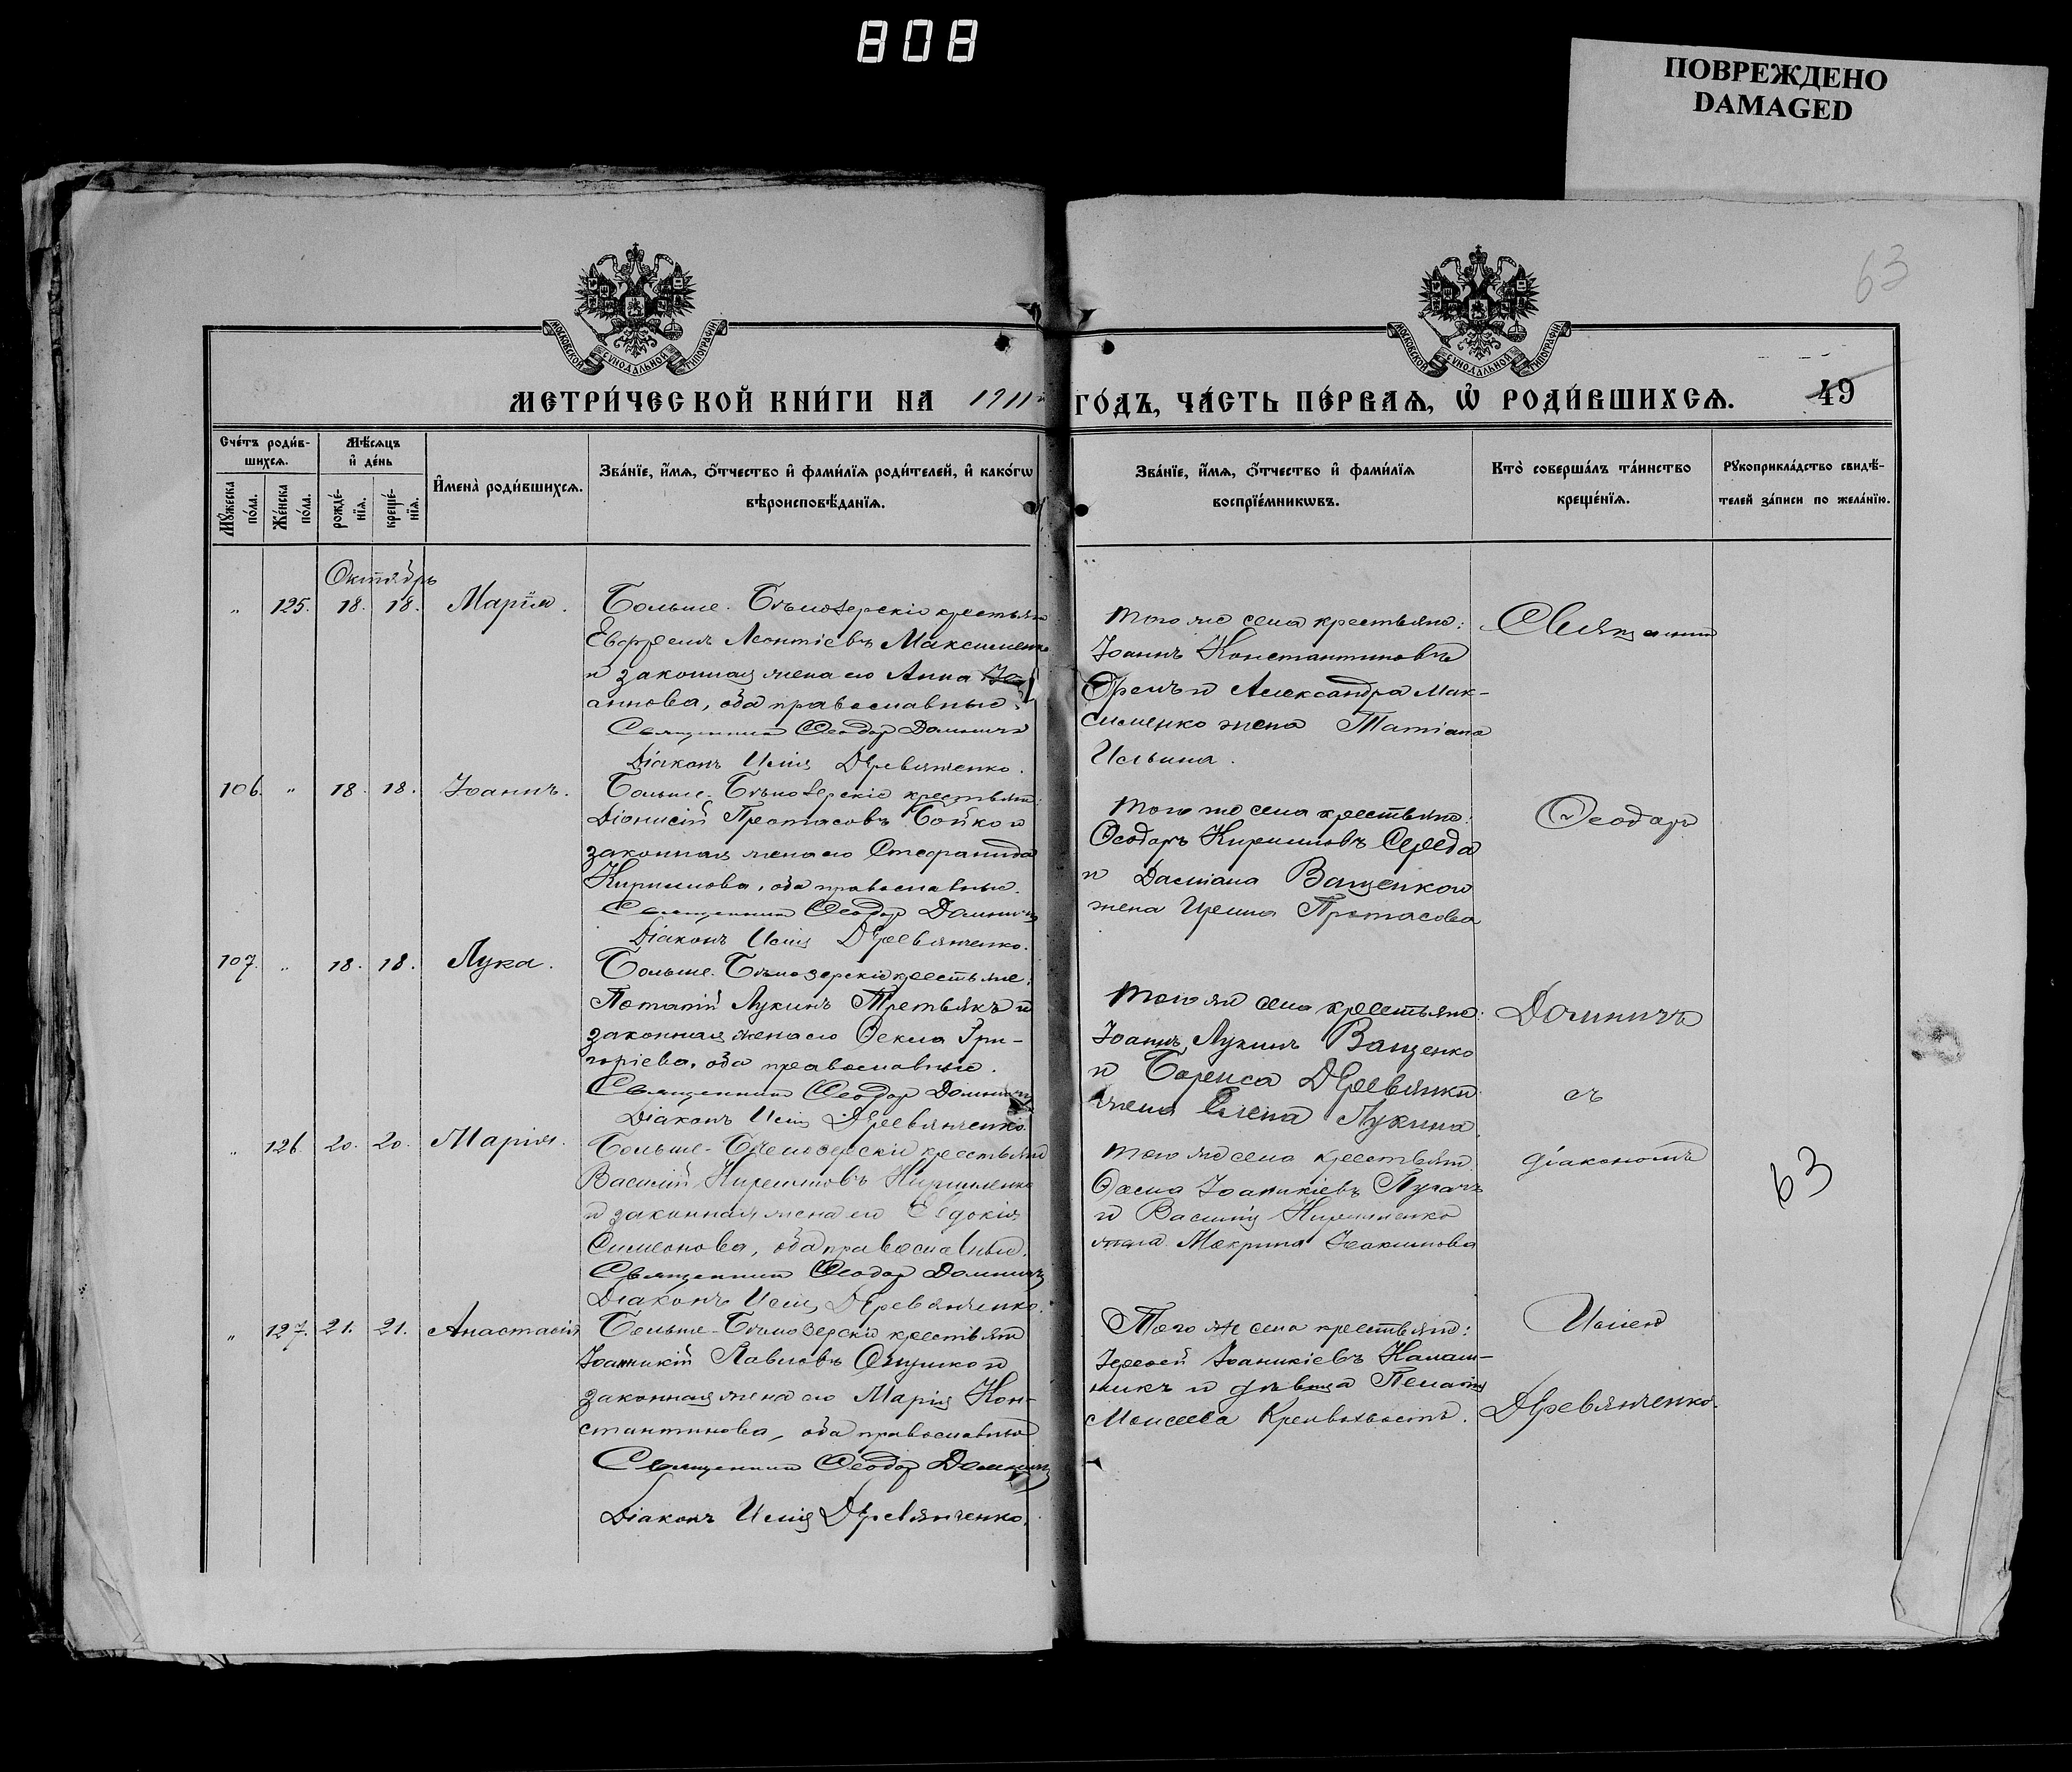 808
ПОВРЕЖДЕНО
DAMAGED
63
МОСКОВСКОЙ СУНОДАЛЬНОЙ ТИПОГРАФІИ
МОСКОВСКОЙ СУНОДАЛЬНОЙ ТИПОГРАФІИ
МЕТРИ́ЧЕСКОЙ КНИ́ГИ НА 1911 ГО́ДЪ, ЧА́СТЬ ПЕ́РВАѦ, Ѡ҆ РОДИ́ВШИХСѦ. 49
Сче́тъ роди́в-
шихсѧ.
Мѣ́сѧцъ
и҆ де́нь
Мꙋ́жеска
по́ла.
Же́нска
по́ла.
рожде́-
нїѧ.
креще́-
нїѧ.
И҆мена̀ роди́вшихсѧ.
Зва́нїе, и҆́мѧ, ѻ҆́тчество и҆ фами́лїѧ роди́телей, и҆ како́гѡ
вѣроисповѣ́данїѧ.
Зва́нїе, и҆́мѧ, ѻ҆́тчество и҆ фами́лїѧ
воспрїе́мникѡвъ.
Кто̀ соверша́лъ та́инство
креще́нїѧ.
Рꙋкоприкла́дство свидѣ́-
телей за́писи по жела́нїю.
Октябрь
" 125. 18. 18. Марія.
Больше-Бѣлозерскіе крестьяне
Евфремъ Леонтіевъ Максименко
и законная жена его Анна Іо
аннова, оба православные.
Священникъ Ѳеодоръ Домничъ
Діаконъ Илія Деревянченко.
Того же села крестьяне:
Іоаннъ Константиновъ
и Александра Мак-
сименко жена Татіана
Ильина.
Священникъ
106. " 18. 18. Іоаннъ.
Больше-Бѣлозерскіе крестьяне:
Діонисій Протасовъ Бойко и
законная жена его Стефанида
Кириллова, оба православные.
Священникъ Ѳеодоръ Домничъ
Діаконъ Илія Деревянченко.
Того же села крестьяне:
Ѳеодоръ Кирилловъ Середа
и Даміана Ващенкого
жена Ирина Протасова
Ѳеодоръ
107. " 18. 18. Лука.
Больше-Бѣлозерскіе крестьяне:
Потапій Лукинъ Третьякъ и
законная жена его Ѳекла Гри-
горіева, оба православные.
Священникъ Ѳеодоръ Домничъ
Діаконъ Илія Деревянченко.
Того же села крестьяне:
Іоаннъ Лукинъ Ващенко
и Бориса Деревянки
жена Елена Лукина.
Домничъ
съ
" 126. 20. 20. Марія.
Больше-Бѣлозерскіе крестьяне
Василій Кирилловъ Кириленко
и законная жена его Евдокія
Симеонова, оба православные.
Священникъ Ѳеодоръ Домничъ
Діаконъ Илія Деревянченко.
Того же села крестьяне
Ѳома Іоаникіевъ Пугачъ
и Василія Кириленко
жена Макрина Іоакимова
діакономъ
63
" 127. 21. 21. Анастасія
Больше-Бѣлозерскіе крестьяне
Іоанникій Павловъ Онушко и
законная жена его Марія Кон-
стантинова, оба православные
Священникъ Ѳеодоръ Домничъ
Діаконъ Илія Деревянченко.
Того же села крестьяне:
Іоаникіевъ Калаш-
никъ и дѣвица Пелагія
Моисеева Кривохвостъ.
Иліею
Деревянченко.